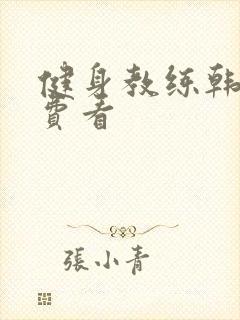 健身教练韩
费看
張小青